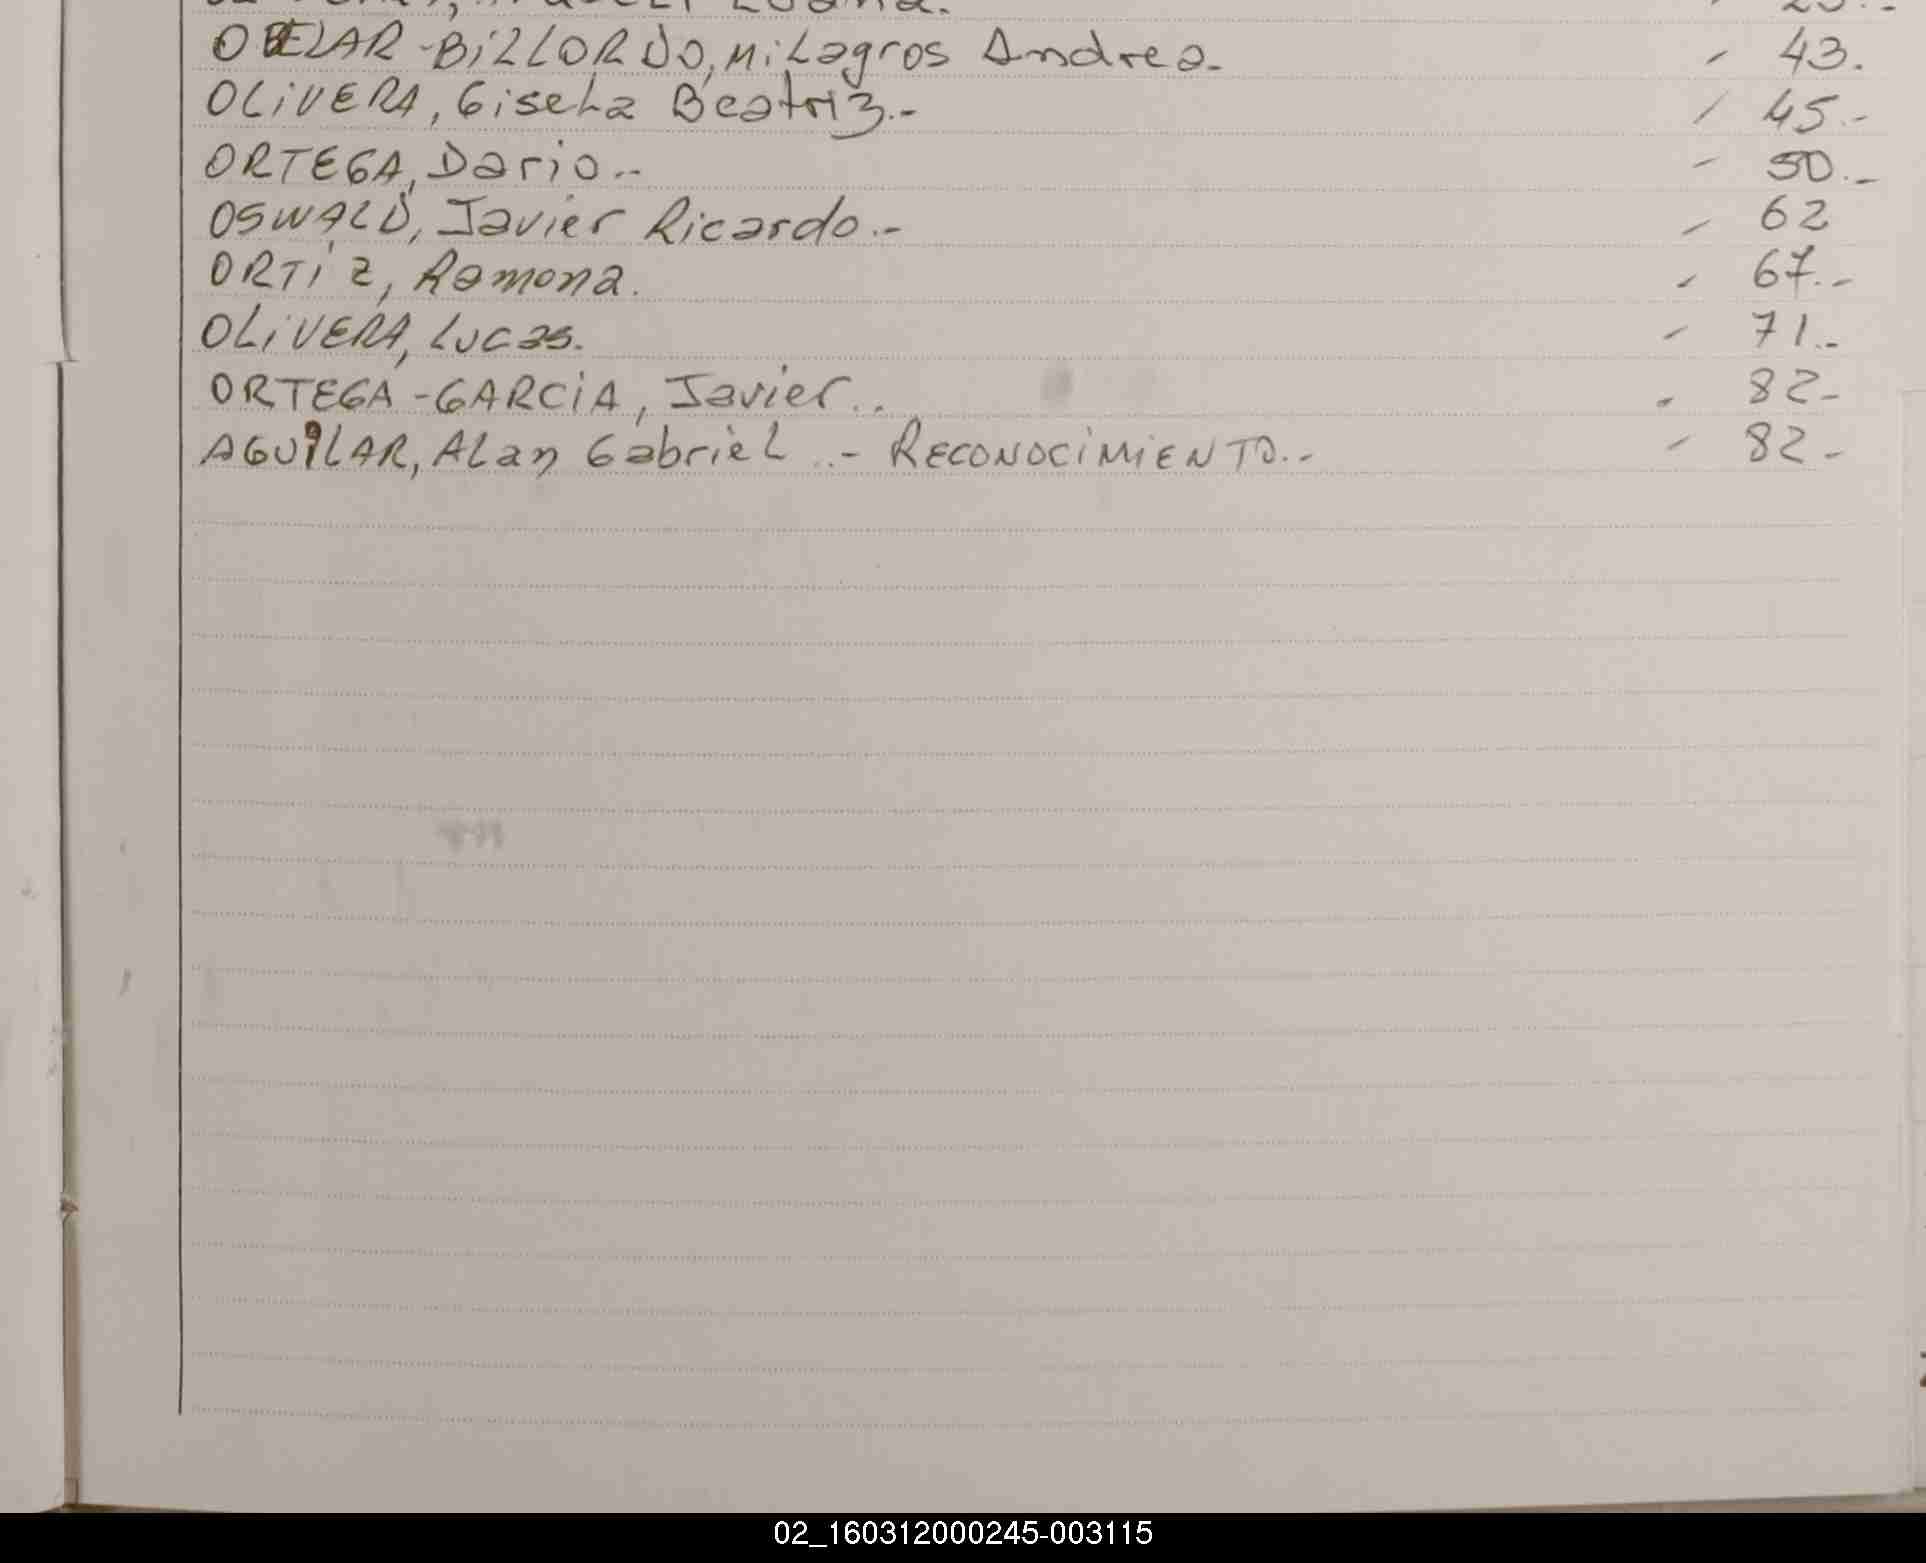 OBELAR-BILLORDO, MiLagros Andrea.- - 43.
OLiVERA, GiseLa Beatriz.- / 45.-
ORTEGA, Dario.- - 50.-
OSWALD, Javier Ricardo.- - 62
ORTiZ, Ramona. - 67.-
OLiVERA, Lucas. - 71.-
ORTEGA-GARCiA, Javier.. - 82-
AGUiLAR, ALan GabrieL ..- RECONOCiMiENTO.- - 82-
02_160312000245-003115